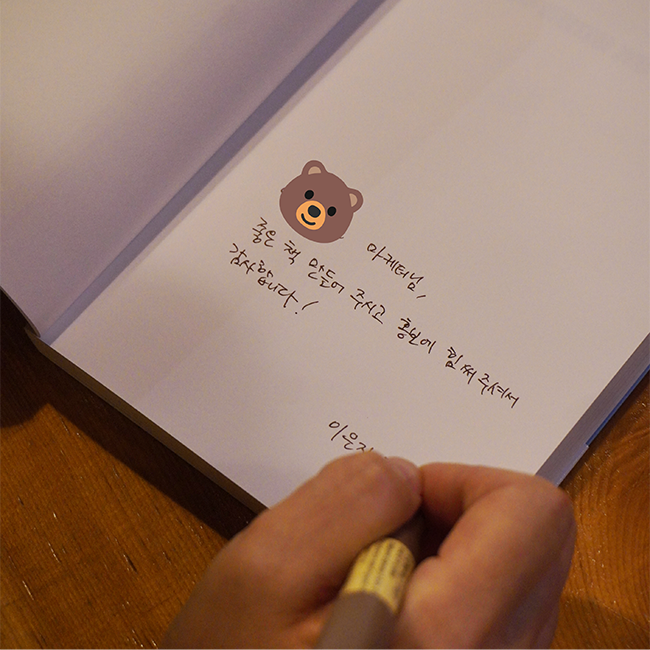 마케터님,
좋은 책 만들어 주시고 홍보에 힘써주셔서
감사합니다!
이은